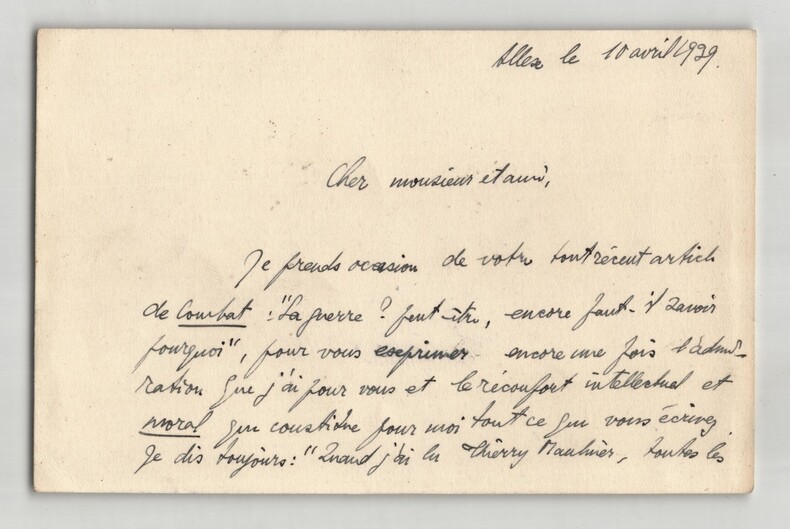 Allex le 10 avril 1939.
Cher monsieur et ami,
Je prends occasion de votre tout récent article
de Combat : "La guerre ? peut-être, encore faut-il savoir
pourquoi", pour vous exprimer encore une fois l'admi-
ration que j'ai pour vous et le réconfort intellectuel et
moral que constitue pour moi tout ce que vous écrivez.
Je dis toujours : "Quand j'ai lu Thierry Maulnier, toutes les